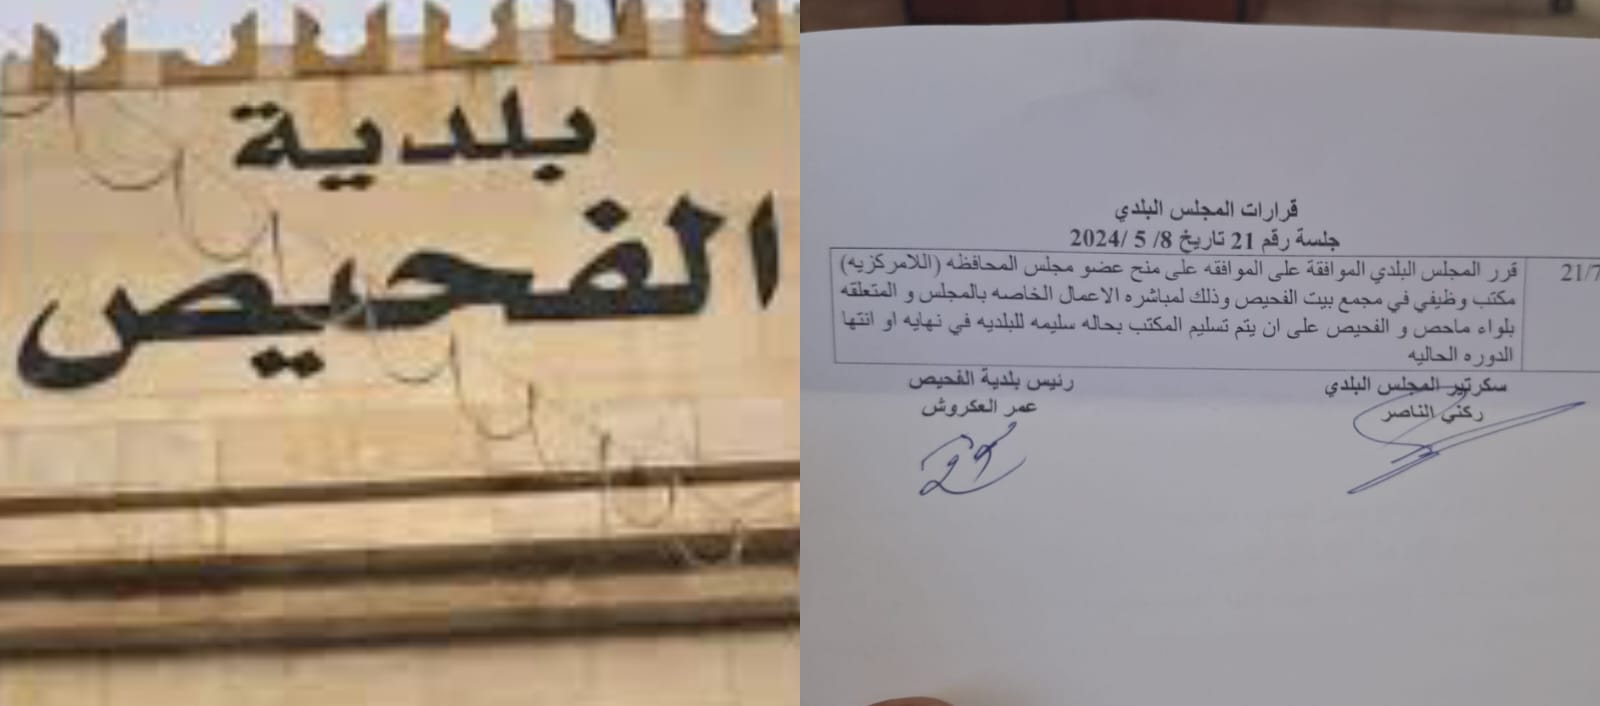 بلدية
الفحيص
قرارات المجلس البلدي
جلسة رقم 21 تاريخ 8/ 5 /2024
21/7
قرر المجلس البلدي الموافقة على الموافقه على منح عضو مجلس المحافظه (اللامركزيه)
مكتب وظيفي في مجمع بيت الفحيص وذلك لمباشره الاعمال الخاصه بالمجلس و المتعلقه
بلواء ماحص و الفحيص على ان يتم تسليم المكتب بحاله سليمه للبلديه في نهايه او انتها
الدوره الحاليه
سكرتير المجلس البلدي
ركني الناصر
رئيس بلدية الفحيص
عمر العكروش